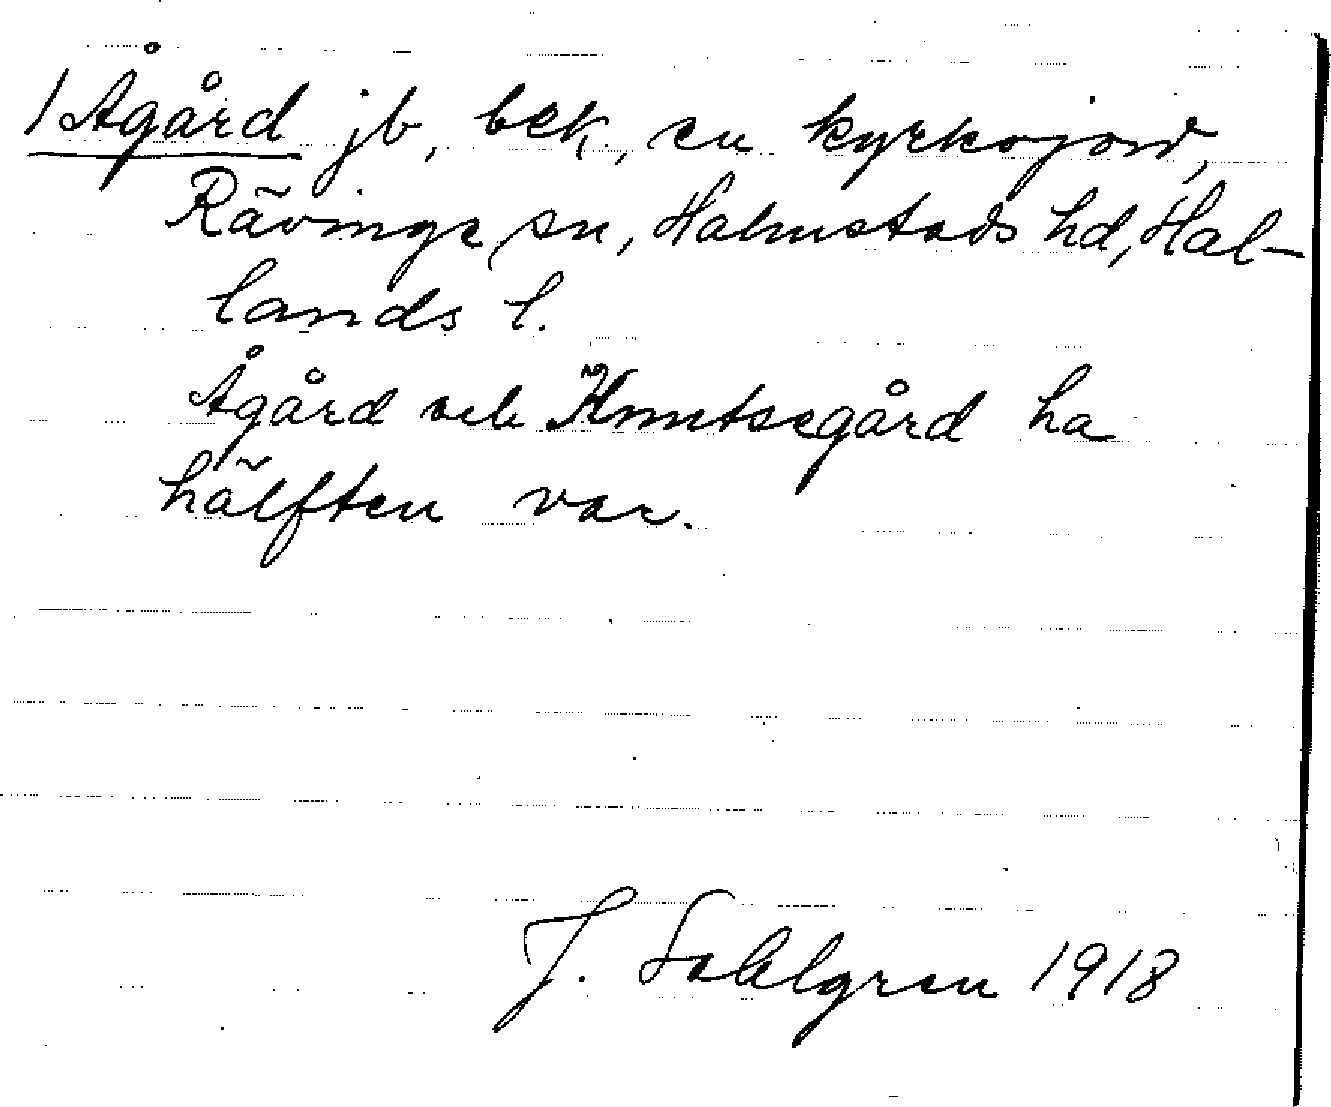 / Ågård jb, bek, en kyrkojord,
Rävinge sn, Halmstads hd, Hal-
lands l.
Ågård och Knutsegård ha
hälften var.
J. Sahlgren 1918